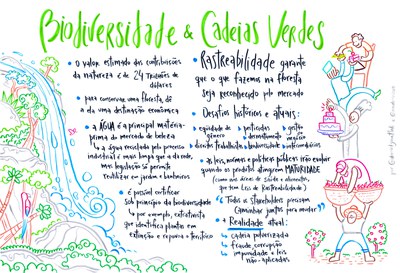 Biodiversidade & Cadeias Verdes
o valor estimado das contribuições
da natureza é de 24 trilhões de
dólares
para conservar uma floresta, dê
a ela uma destinação econômica
a ÁGUA é a principal matéria-
prima do mercado de beleza
a água reciclada pelo processo
industrial é mais limpa que a da rede,
mas legislação só permite
reutilizar em jardins e banheiros
é possível certificar
sob princípio da biodiversidade
por exemplo, extrativista
que identifica plantas em
extinção e repovoa o território
Rastreabilidade garante
que o que fazemos na floresta
seja reconhecido pelo mercado
Desafios históricos e atuais:
equidade de gênero
pesticidas
desmatamento
gestão
negócio
direitos trabalhistas
biodiversidade
intermediários
as leis, normas e políticas públicas irão evoluir
quando os produtos atingirem MATURIDADE
(como nas áreas de saúde e alimentos,
que tem Leis de Rastreabilidade)
"Todos os stakeholders precisam
caminhar juntos para mudar"
Realidade atual:
cadeia pulverizada
fraude, corrupção
impunidade e leis
não-aplicadas